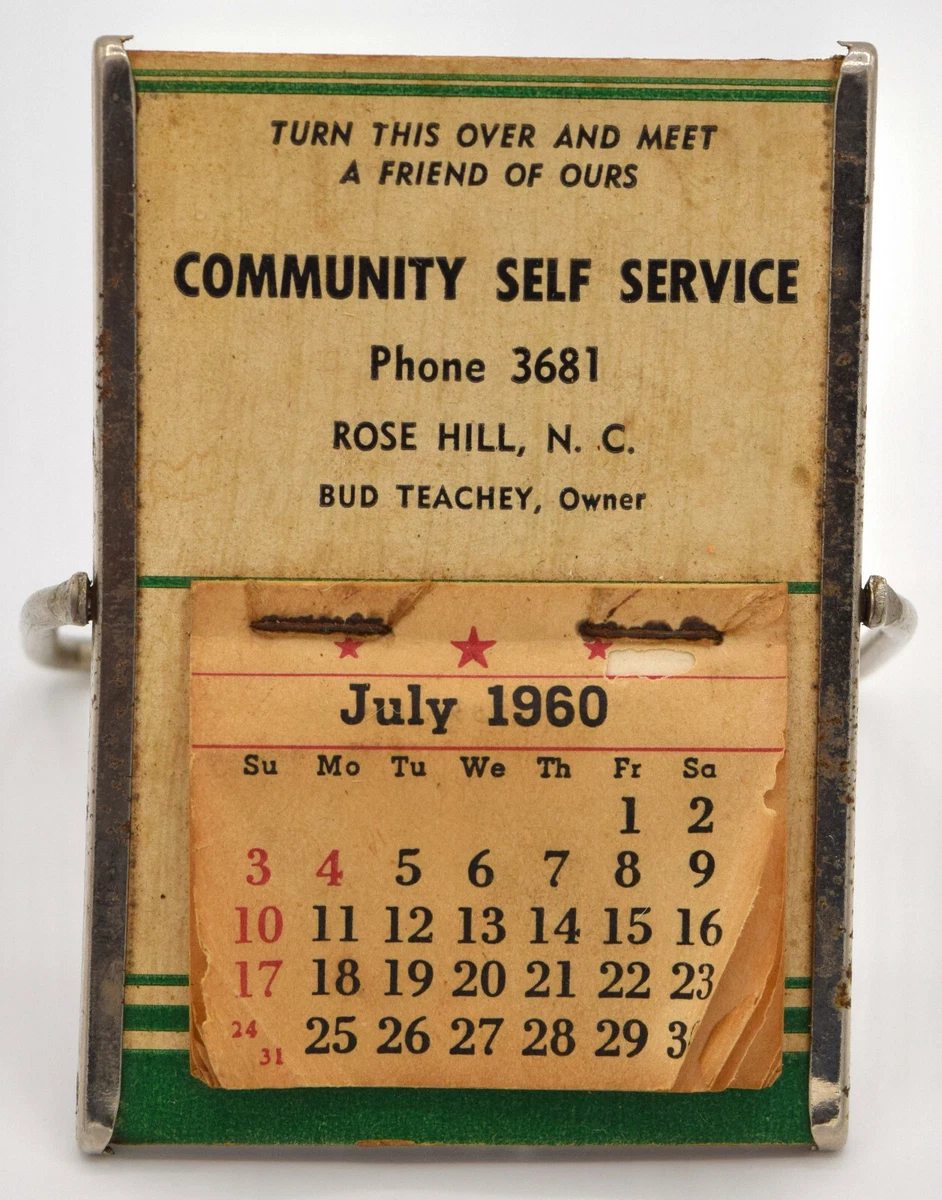 TURN THIS OVER AND MEET
A FRIEND OF OURS
COMMUNITY SELF SERVICE
Phone 3681
ROSE HILL, N. C.
BUD TEACHEY, Owner
July 1960
Su Mo Tu We Th Fr Sa
1 2
3 4 5 6 7 8 9
10 11 12 13 14 15 16
17 18 19 20 21 22 23
24 31 25 26 27 28 29 30